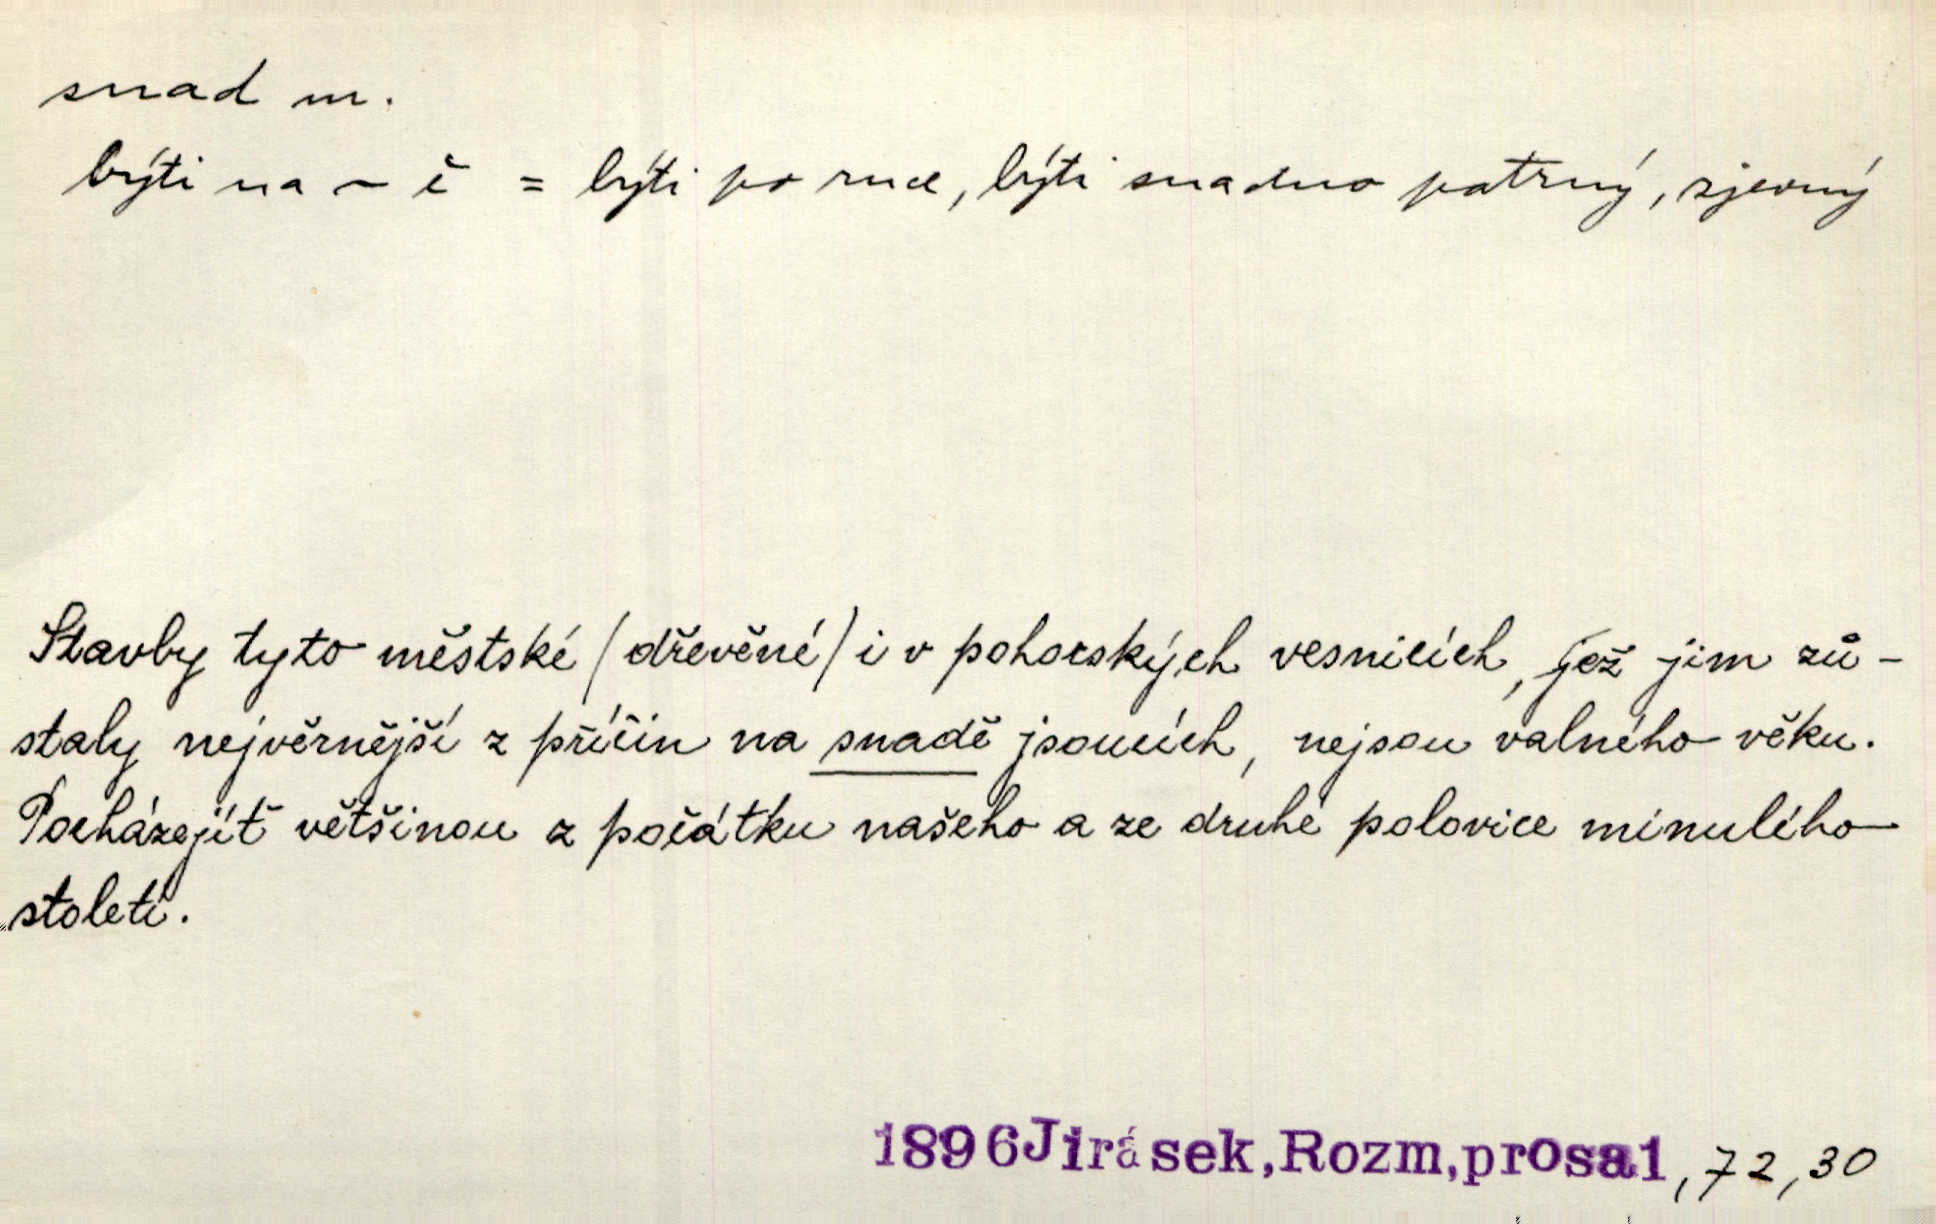 snad m.
býti na ~ ě = býti po ruce, býti snadno patrný, zjevný
Stavby tyto městské /dřevěné/ i v pohorských vesnicích, jež jim zů-
staly nejvěrnější z příčin na snadě jsoucích, nejsou valného věku.
Pocházejíť většinou z počátku našeho a ze druhé polovice minulého
století.
1896 Jirásek, Rozm, prosa1, 72, 30